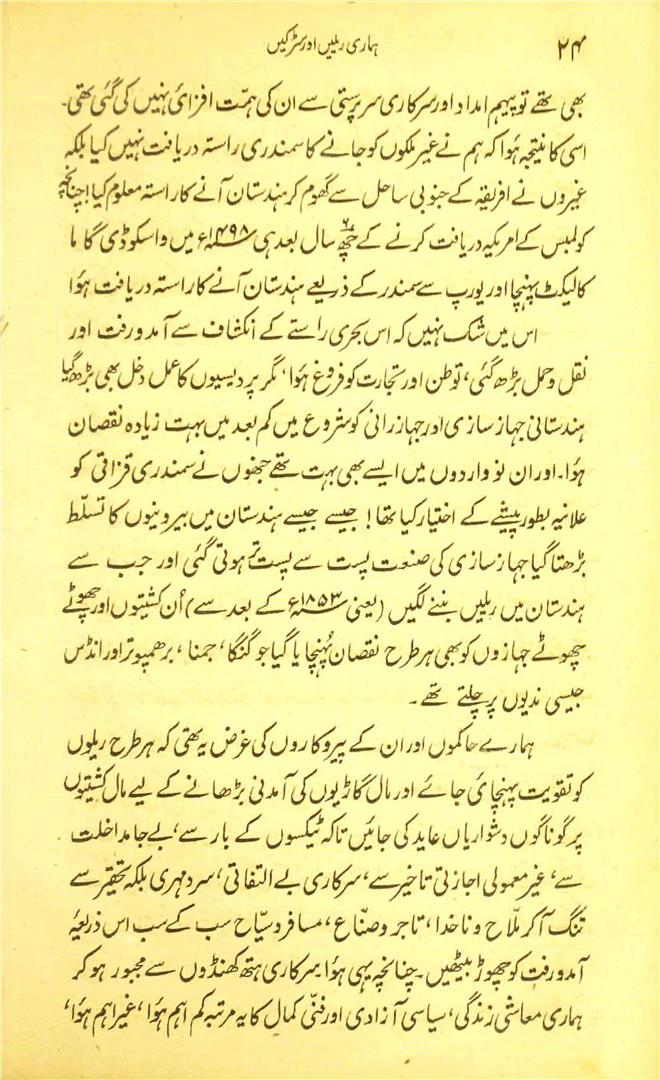 ۲۴ ہماری ریلیں اور سڑکیں
بھی تھے تو پیہم امداد اور سرکاری سرپرستی سے ان کی ہمّت افزائی نہیں کی گئی تھی۔
اسی کا نتیجہ ہؤا کہ ہم نے غیر ملکوں کو جانے کا سمندری راستہ دریافت نہیں کیا بلکہ
غیروں نے افریقہ کے جنوبی ساحل سے گھوم کر ہندستان آنے کا راستہ معلوم کیا! چنانچہ
کولمبس کے امریکہ دریافت کرنے کے چھ۶ سال بعد ہی ۱۴۹۸ء میں واسکوڈی گاما
کالیکٹ پہنچا اور یورپ سے سمندر کے ذریعے ہندستان آنے کا راستہ دریافت ہؤا
اس میں شک نہیں کہ اس بحری راستے کے انکشاف سے آمد ورفت اور
نقل و حمل بڑھ گئی، توطن اور تجارت کو فروغ ہؤا، مگر پردیسیوں کا عمل دخل بھی بڑھ گیا
ہندستانی جہاز سازی اور جہاز رانی کو شروع میں کم بعد میں بہت زیادہ نقصان
ہؤا۔ اور ان نو واردوں میں ایسے بھی بہت تھے جنھوں نے سمندری قزاقی کو
علانیہ بطور پیشے کے اختیار کیا تھا! جیسے جیسے ہندستان میں بیرونیوں کا تسلّط
بڑھتا گیا جہاز سازی کی صنعت پست سے پست تر ہوتی گئی اور جب سے
ہندستان میں ریلیں بننے لگیں (یعنی ۱۸۵۳ء کے بعد سے) اُن کشتیوں اور چھوٹے
چھوٹے جہازوں کو بھی ہر طرح نقصان پُہنچایا گیا جو گنگا، جمنا، برھمپوتر اور انڈس
جیسی ندیوں پر چلتے تھے۔
ہمارے حاکموں اور ان کے پیروکاروں کی غرض یہ تھی کہ ہر طرح ریلوں
کو تقویت پہنچائی جائے اور مال گاڑیوں کی آمدنی بڑھانے کے لیے مال کشتیوں
پر گوناگوں دشواریاں عاید کی جائیں تاکہ ٹیکسوں کے بار سے، بے جا مداخلت
سے، غیر معمولی اجازتی تاخیر سے، سرکاری بے التفاتی، سرد مہری بلکہ تحقیر سے
تنگ آکر ملّاح و ناخدا، تاجر و صنّاع، مسافر و سیّاح سب کے سب اس ذریعۂ
آمد ورفت کو چھوڑ بیٹھیں۔ چنانچہ یہی ہؤا۔ سرکاری ہتھ کھنڈوں سے مجبور ہو کر
ہماری معاشی زندگی، سیاسی آزادی اور فنّی کمال کا یہ مرتبہ کم اہم ہؤا، غیر اہم ہؤا،